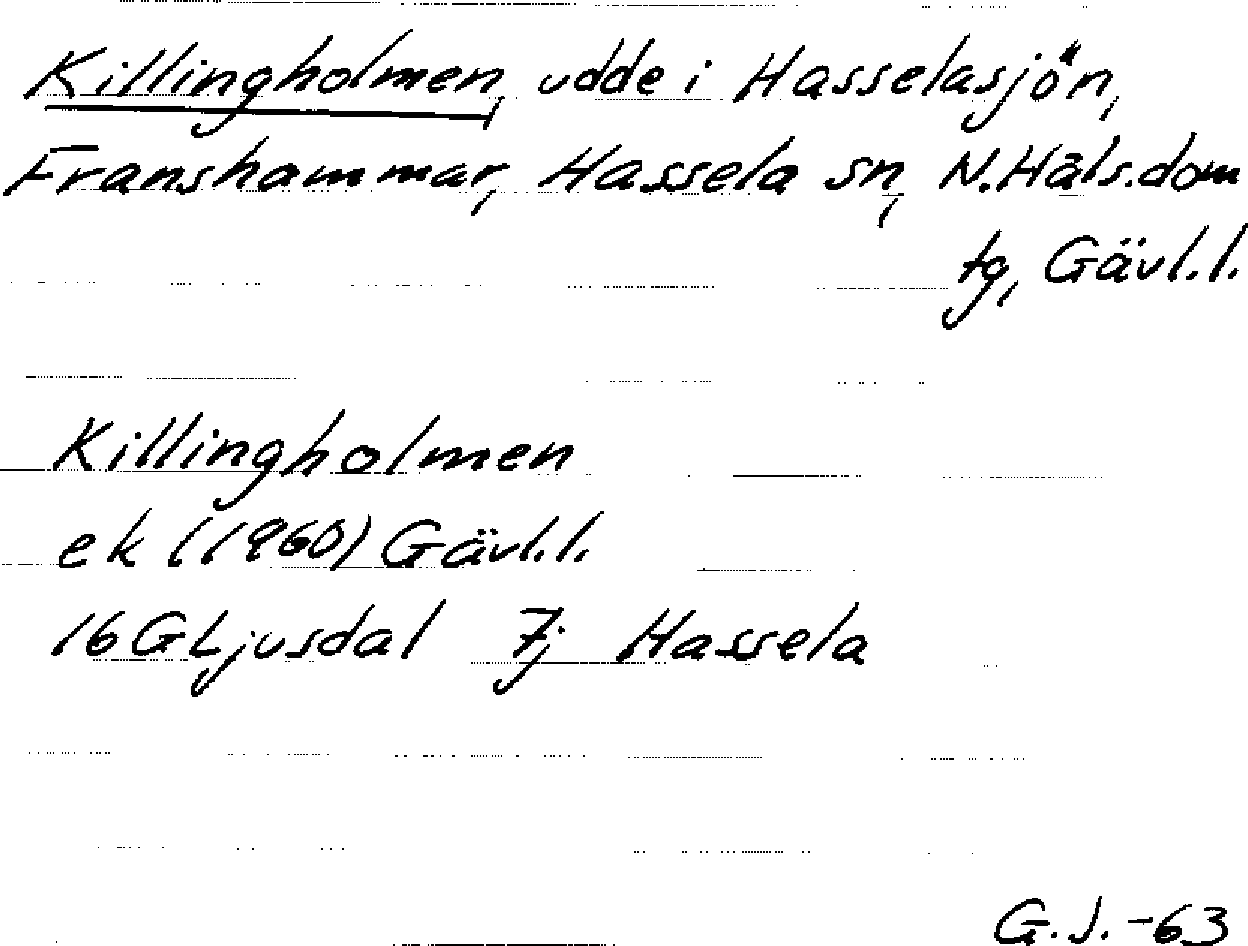 Killingholmen, udde i Hasselasjön,
Franshammar, Hassela sn, N.Häls.dom
tg, Gävl.l.
Killingholmen
ek (1960) Gävl.l.
16G Ljusdal 7j Hassela
G.J.-63